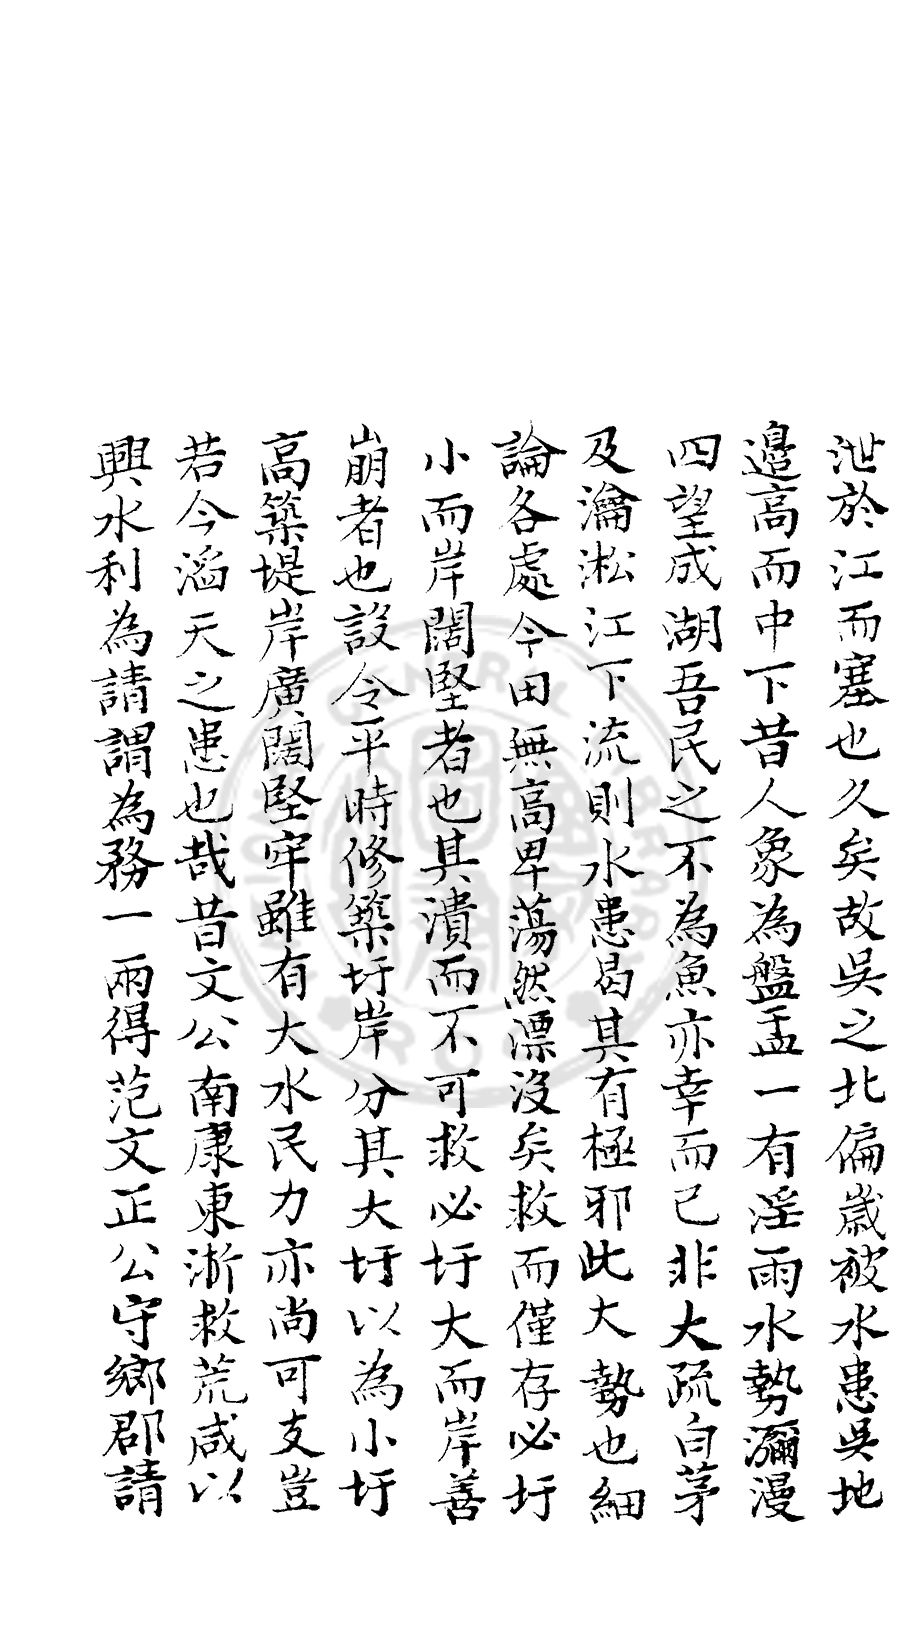 泄於江而塞也久矣故吳之北偏歲被水患吳地
邉高而中下昔人象為盤盂一有淫雨水勢瀰漫
四望成湖吾民之不為魚亦幸而已非大疏白茅
及瀹淞江下流則水患曷其有極邪此大勢也細
論各處今田無高卑蕩然漂沒矣救而僅存必圩
小而岸闊堅者也其潰而不可救必圩大而岸善
崩者也設令平時修築圩岸分其大圩以為小圩
高築堤岸廣闊堅牢雖有大水民力亦尚可支豈
若今滔天之患也哉昔文公南康東淛救荒咸以
興水利為請謂為務一兩得范文正公守鄉郡請